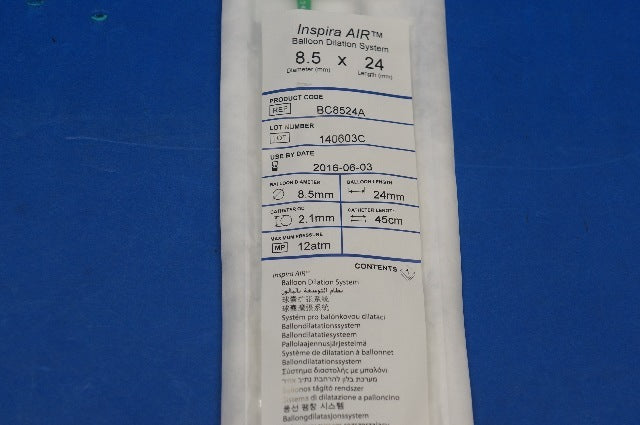 Inspira AIR™
Balloon Dilation System
8.5 x 24
Diameter (mm) Length (mm)
PRODUCT CODE
REF BC8524A
LOT NUMBER
LOT 140603C
USE BY DATE
2016-06-03
BALLOON DIAMETER 8.5mm
BALLOON LENGTH 24mm
CATHETER OD 2.1mm
CATHETER LENGTH 45cm
MAXIMUM PRESSURE
MP 12atm
CONTENTS 1
Inspira AIR™
Balloon Dilation System
نظام التوسعة بالبالون
球囊扩张系统
球囊擴張系統
Systém pro balónkovou dilataci
Ballondilatationssystem
Ballondilatatiesysteem
Pallolaajennusjärjestelmä
Système de dilatation à ballonnet
Ballondilatationssystem
Σύστημα διαστολής με μπαλόνι
מערכת בלון להרחבת נתיב אוויר
tágító rendszer
Sistema di dilatazione a palloncino
풍선 팽창 시스템
Ballongdilatasjonssystem